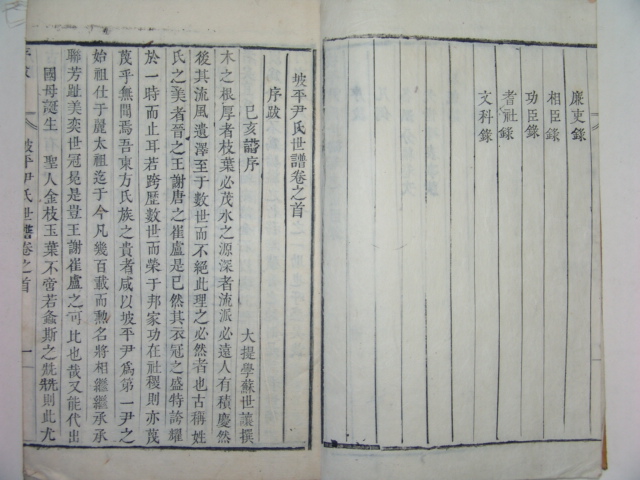 廉吏錄
相臣錄
功臣錄
耆社錄
文科錄
坡平尹氏世譜卷之首
序跋
己亥譜序
大提學蘇世讓撰
木之根厚者枝葉必茂水之源深者流派必遠人有積慶然
後其流風遺澤至于數世而不絕此理之必然者也古稱姓
氏之美者晉之王謝唐之崔盧是已然其衣冠之盛特誇耀
於一時而止耳若跨歷數世而榮于邦家功在社稷則亦蔑
蔑乎無聞焉吾東方氏族之貴者咸以坡平尹爲第一尹之
始祖仕于麗太祖迄于今凡幾百載而勲名將相繼繼承承
聯芳趾美奕世冠冕是豈王謝崔盧之可比也哉又能代出
國母誕生
聖人金枝玉葉不啻若螽斯之兟兟則此尤
坡平尹氏世譜卷之首
一